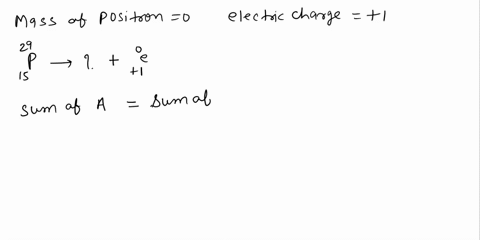 Mass of Positron = 0 electric charge = +1
²⁹₁₅P → ?. + ⁰₊₁e
Sum of A = Sum of